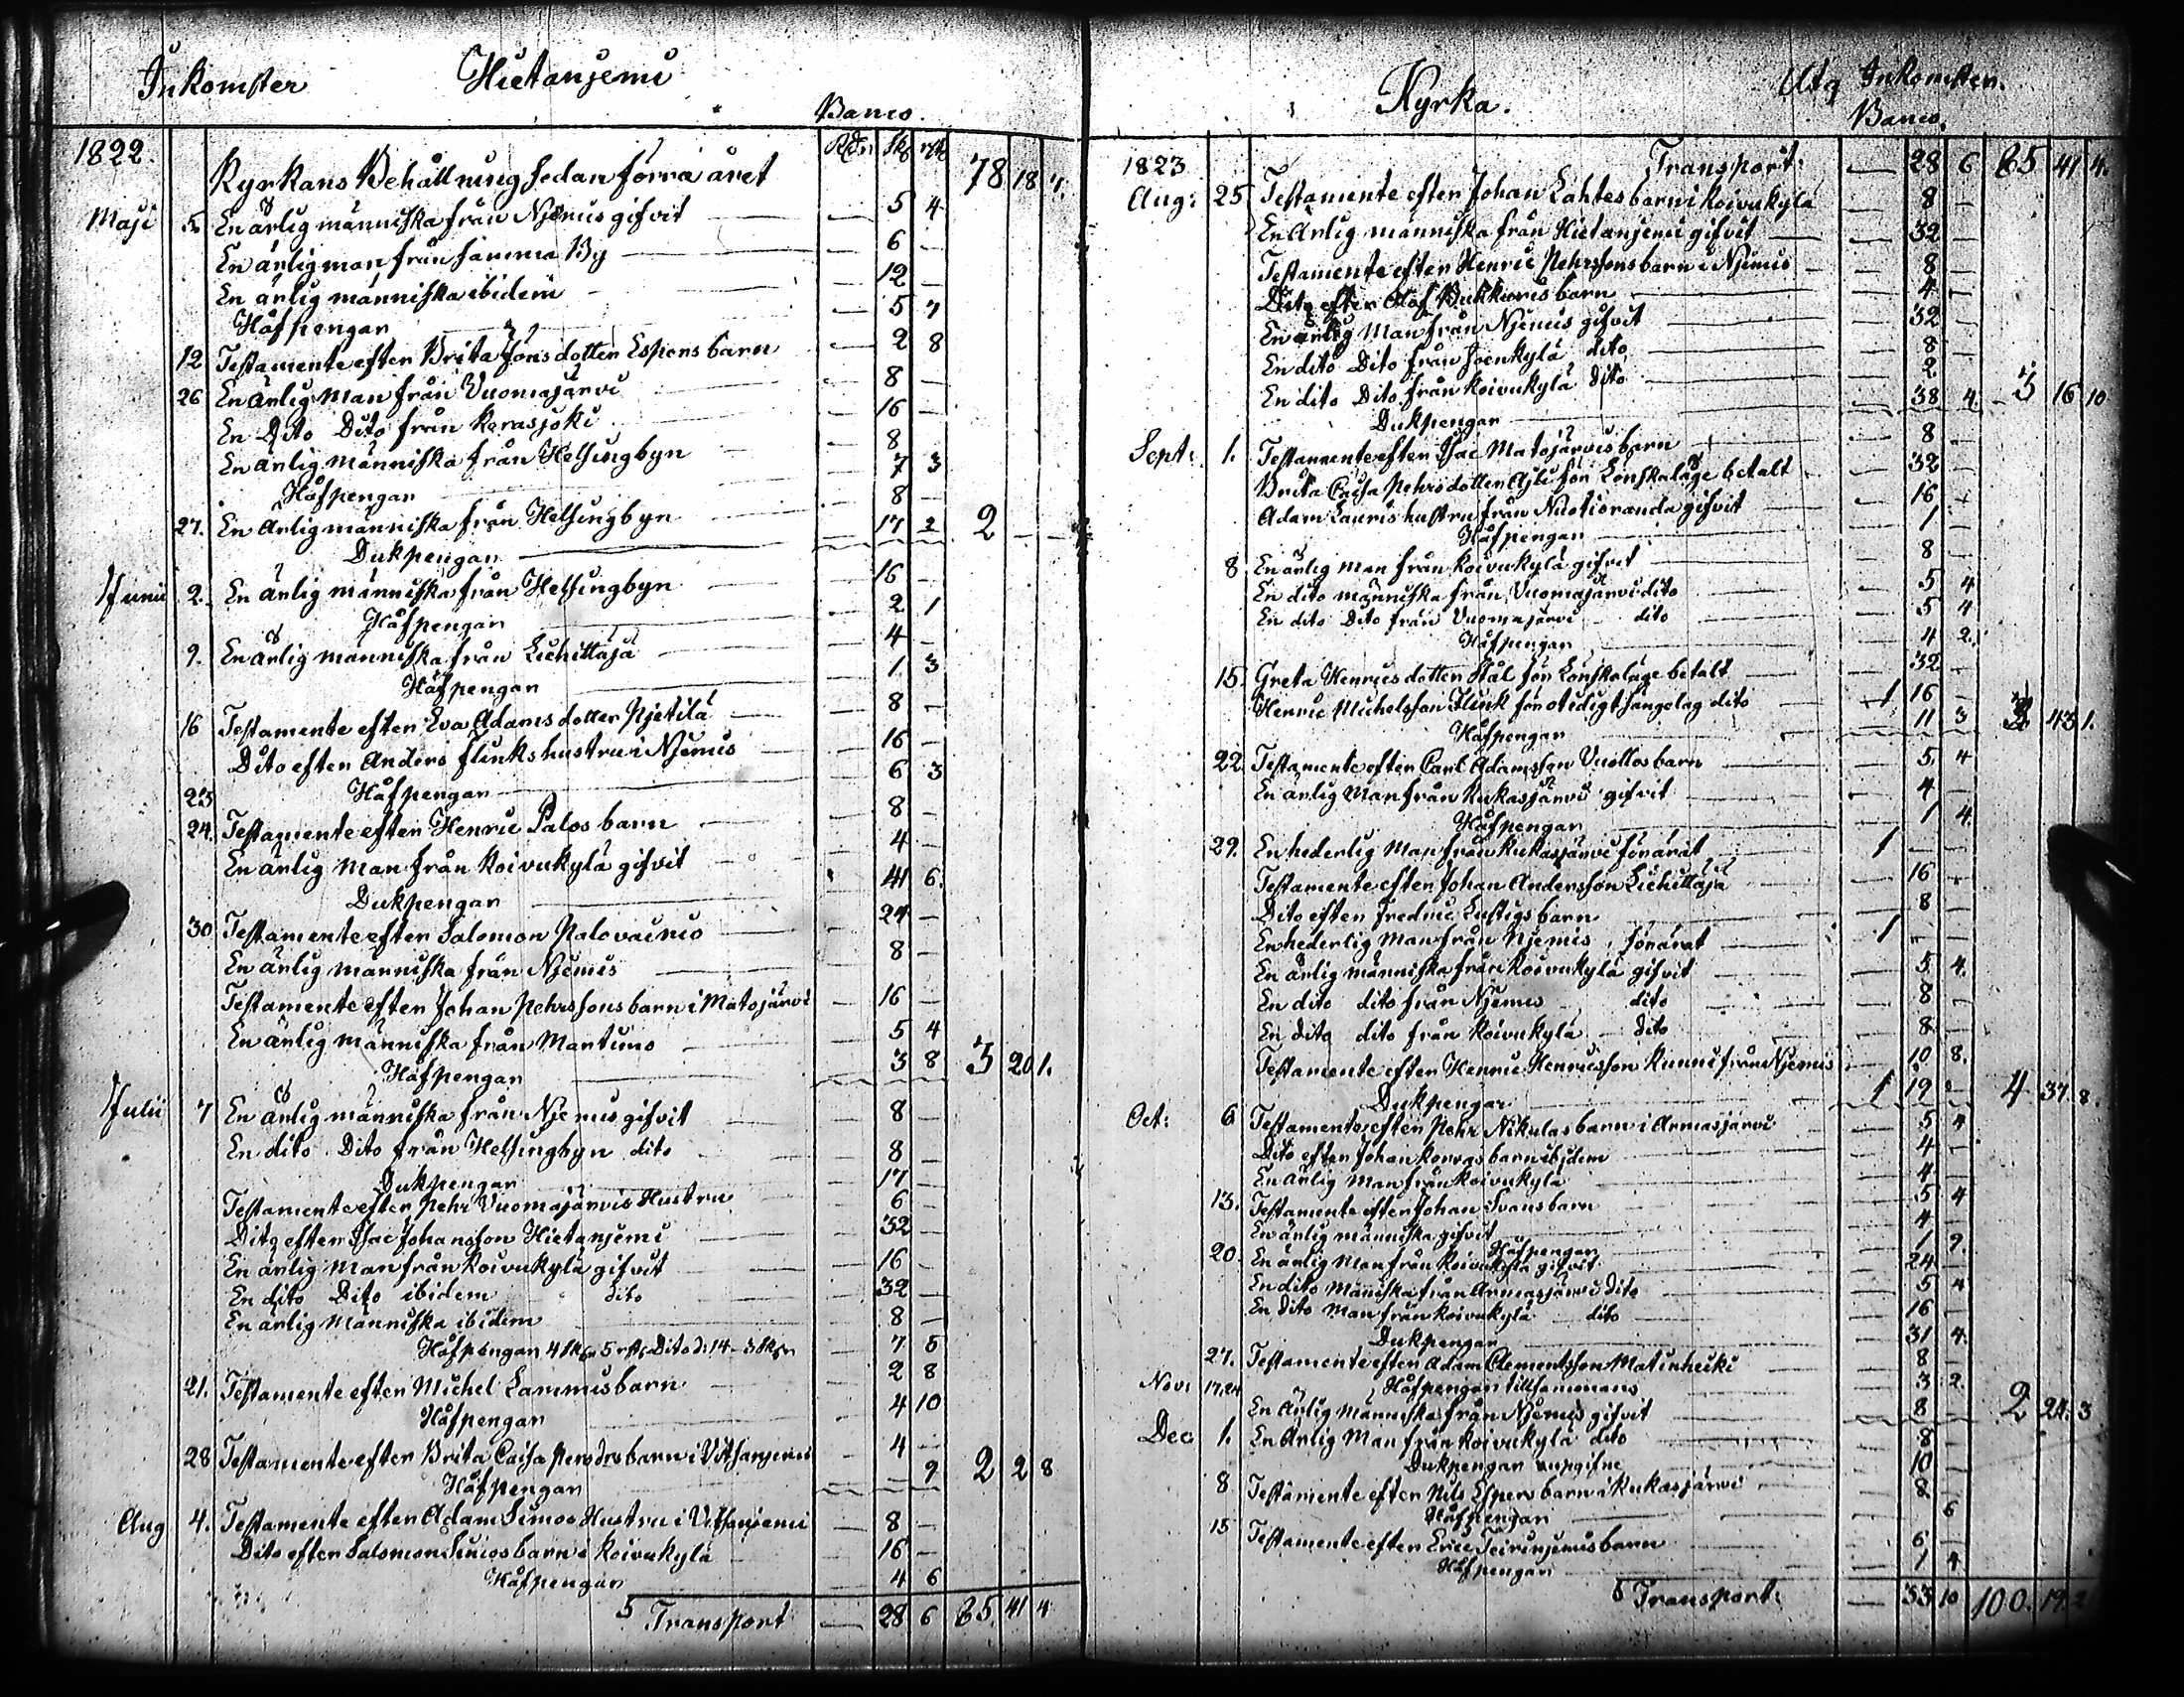 Inkomster Hietaniemi
Banco.
1822. Rdr sk rst
Kyrkans Behållning sedan förra året 78 18 7.
Maji 5. En ärlig människa från Niemis gifvit — 5 4
En ärlig man från samma By — 6 —
En ärlig människa ibidem — 12 —
Håfpengar — 5 7
12 Testamente efter Brita Jönsdotter Espens barn — 2 8
26 En ärlig Man från Vuomajärvi — 8 —
En Dito Dito från Kerasjoki — 16 —
En ärlig människa från Helsingbyn — 8
Håfpengar — 7 3
27. En ärlig människa från Helsingbyn — 8 —
Dukpengar — 17 2 2 — —
Junii 2. En ärlig människa från Helsingbyn — 16 —
Håfpengar — 2 1
9. En ärlig människa från Lichittäjä — 4 —
Håfpengar — 1 3
16 Testamente efter Eva Adamsdotter Pjetilä — 8 —
Dito efter Anders Flinks hustru i Niemis — 16 —
23 Håfpengar — 6 3
24. Testamente efter Henric Palos barn — 8 —
En ärlig Man från Koivukylä gifvit — 4 —
Dukpengar 41 6.
30 Testamente efter Salomon Palovainio — 24 —
En ärlig människa från Niemis — 8 —
Testamente efter Johan Pehrssons barn i Matojärvi — 16 —
En ärlig människa från Martimo 5 4
Håfpengar 3 8 3 20 1.
Julii 7 En ärlig människa från Niemis gifvit — 8 —
En dito Dito från Helsingbyn dito — 8 —
Dukpengar — 17 —
Testamente efter Pehr Vuomajärvis Hustru — 6 —
Dito efter Isac Johansson Hietaniemi — 32 —
En ärlig Man från Koivukylä gifvit — 16 —
En dito Dito ibidem dito — 32 —
En ärlig Människa ibidem — 8 —
Håfpengar 4 sk 5 rst Dito d: 14 - 3 sk — 7 5
21. Testamente efter Michel Lammis barn — 2 8
Håfpengar — 4 10
28 Testamente efter Brita Caisa barn i Vitsaniemi — 4 —
Håfpengar — 9 2 2 8
Aug 4. Testamente efter Adam Simos Hustru i Vitsaniemi — 8 —
Dito efter Salomon Simos barn i Koivukylä — 16 —
Håfpengar — 4 6
Transport — 28 6 85 41 4
Kyrka. Utg Inkomsten.
Banco.
1823 Transport: — 28 6 85 41 4.
Aug: 25 Testamente efter Johan Lahtes barn i Koivukylä — 8 —
En ärlig människa från Hietaniemi gifvit — 32 —
Testamente efter Henric Pehrssons barn i Niemis — 8 —
Dito efter Olof barn — 4 —
En ärlig Man från Niemis gifvit — 32 —
En dito Dito från Joenkylä dito — 8 —
En dito Dito från Koivukylä dito — 2
Dukpengar — 38 4 3 16 10
Sept: 1. Testamente efter Isac Matojärvis barn — 8 —
Brita Caisa Pehrsdotter för Lönskaläge betalt — 32 —
Adam Lauris hustru från Nuotioranda gifvit — 16 —
Håfpengar — 1 —
8 En ärlig Man från Koivukylä gifvit — 8 —
En dito människa från Vuomajärvi dito — 5 4
En dito Dito från Vuomajärvi dito — 5 4
Håfpengar — 4 2.
15. Greta Henricsdotter Stål för Lönskaläge betalt — 32 —
Henric Michelsson Flink för otidigt sängelag dito 1 16 —
Håfpengar — 11 3 3 43 1.
22. Testamente efter Carl Adamsson Vuollos barn — 5. 4
En ärlig Man från Kukasjärvi gifvit — 4 —
Håfpengar — 1 4.
29. En hederlig Man från Kukasjärvi förärat 1 — —
Testamente efter Johan Andersson Lichittäjä — 16 —
Dito efter Fredric Lustigs barn — 8 —
En hederlig Man från Niemis förärat 1 — —
En ärlig människa från Koivukylä gifvit — 5 4.
En dito dito från Niemis dito — 8 —
En dito dito från Koivukylä dito — 8 —
Testamente efter Henric Henricsson Kunni från Niemis — 10 8.
Dukpengar 1 19 — 4 37 8.
Oct: 6 Testamente efter Pehr Nikulas barn i Armasjärvi — 5 4
Dito efter Johan Korvas barn ibidem — 4 —
En ärlig Man från Koivukylä — 4 —
13. Testamente efter Johan Svans barn — 5 4
En ärlig människa gifvit — 4 —
Håfpengar — 1 9.
20. En ärlig Man från Koivukylä gifvit — 24 —
En dito Människa från Armasjärvi dito — 5 4
En dito Man från Koivukylä dito — 16 —
Dukpengar — 31 4.
27. Testamente efter Adam Clementsson Matinheiki — 8 —
Nov: 17,24 Håfpengar tillsammans — 3 2.
En ärlig Människa från Niemis gifvit — 8 — 2 24. 3
Dec 1. En ärlig Man från Koivukylä dito — 8 —
Dukpengar — 10 —
8 Testamente efter Nils Espers barn i Kukasjärvi — 8 —
Håfpengar — 6
15 Testamente efter Eric Teiriniemis barn — 6 —
Håfpengar — 1 4
Transport: — 33 10 100. 19. 2